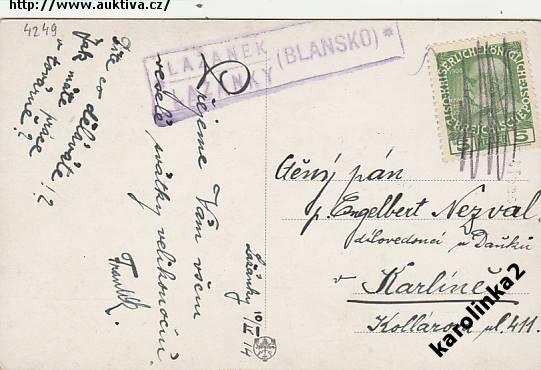 http://www.auktiva.cz/
4249
LAZANEK
LAZÁNKY (BLANSKO) *
KAISERLICHE KÖNIGLICHE
5 5
co děláte
Jak máte práce
v továrně? !?
Přejeme Vám všem
veselé svátky velikonoční.
Frantík.
Lažánky 10/IV 14
Ctěný pán
p. Engelbert Nezval
dílovedoucí u Daňků
v Karlíně
Kollárova ul. 411.
karolinka2